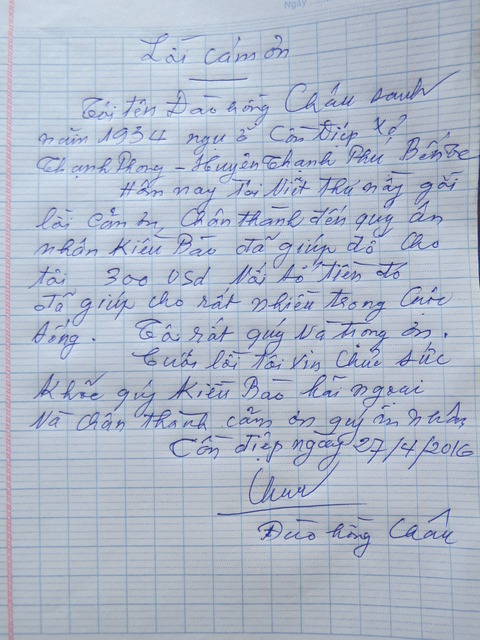 Lời cám ơn
Tôi tên Đào hồng Châu sanh
năm 1934 ngụ ở Cồn Điệp Xã
Thạnh Phong - Huyện Thạnh Phú, Bến Tre
Hôm nay Tôi Viết thư này gởi
lời cảm ơn Chân thành đến quý ân
nhân Kiều Bào đã giúp đỡ Cho
tôi 300 USd Với số Tiền đó
đã giúp cho rất nhiều trong Cuộc
sống. Tôi rất quý Và trong ơn.
Cuối lời tôi xin Chúc sức
Khỏe quý Kiều Bào hải ngoại
Và Chân thành cảm ơn quý ân nhân
Cồn điệp ngày 27/4/2016
Chau
Đào hồng Châu